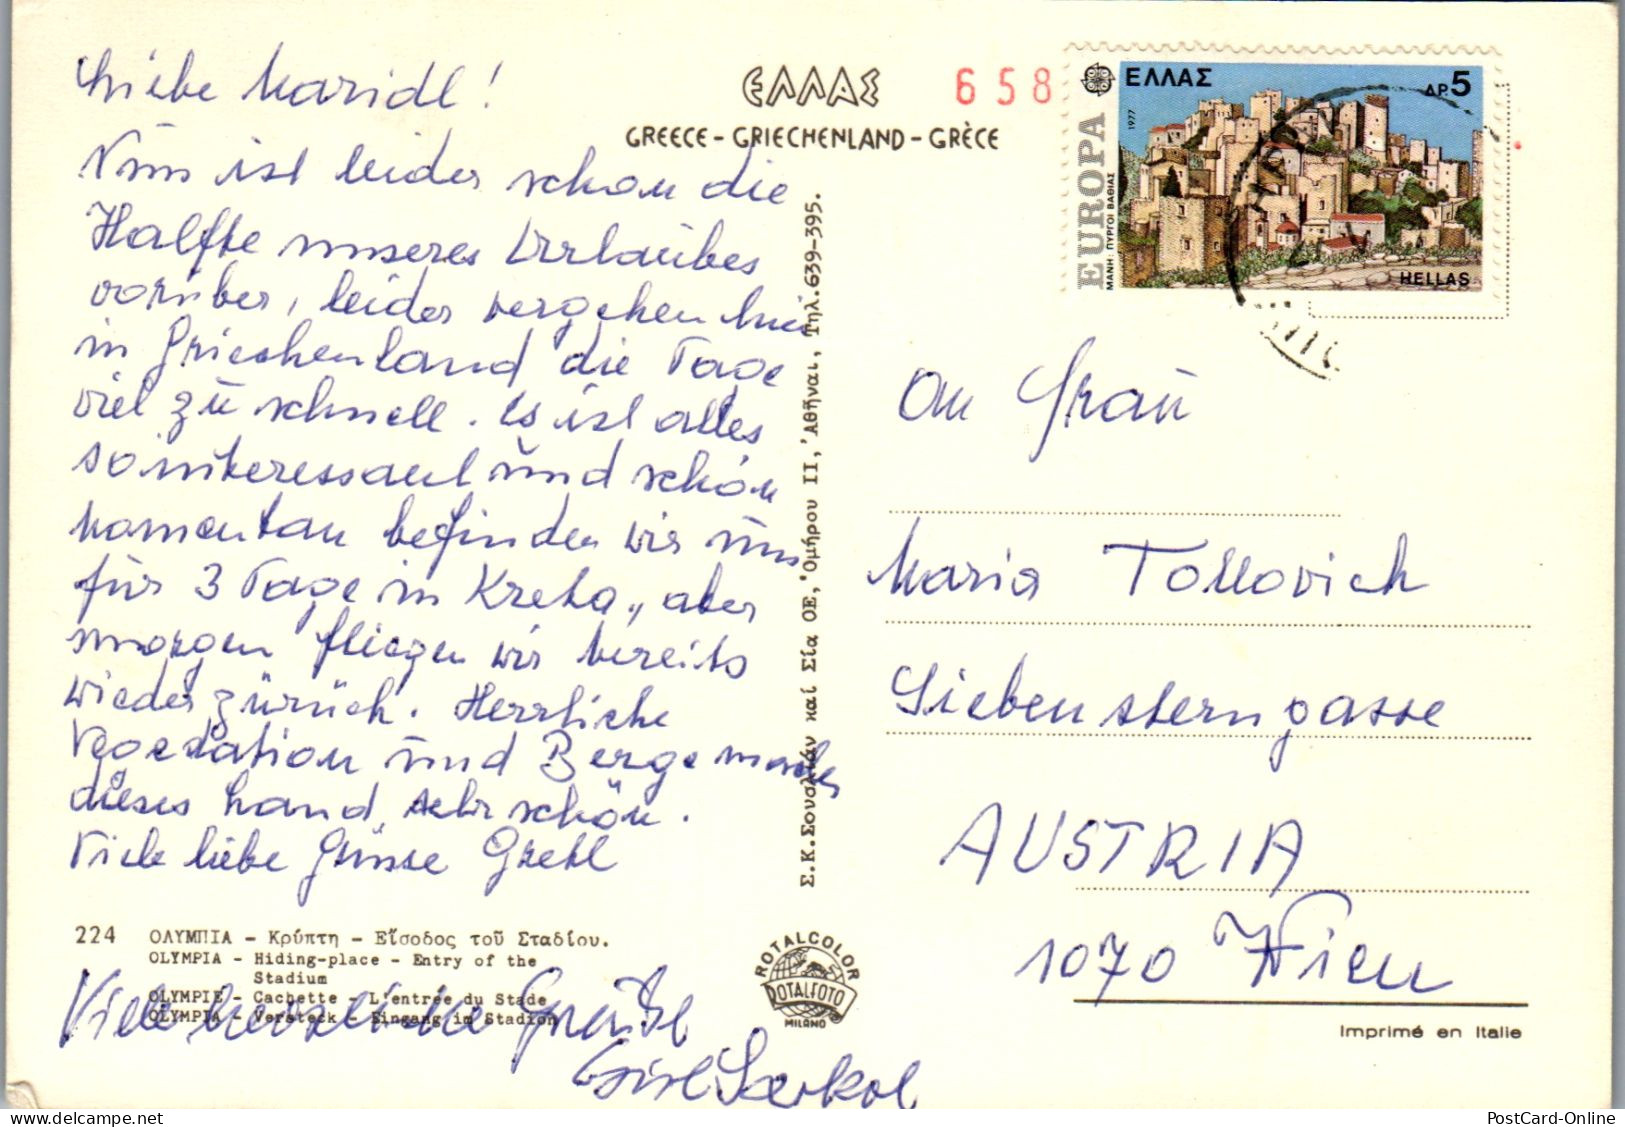 Liebe Maridl!
Nun ist leider schon die
Hälfte unseres Urlaubes
vorüber, leider vergehen hier
in Griechenland die Tage
viel zu schnell. Es ist alles
so interessant und schön
momentan befinden wir uns
für 3 Tage in Kreta, aber
morgen fliegen wir bereits
wieder zurück. Herrliche
Vegetation und Berge machen
dieses Land sehr schön.
Viele liebe Grüsse Gretl
224 ΟΛΥΜΠΙΑ - Κρύπτη - Εἴσοδος τοῦ Σταδίου.
OLYMPIA - Hiding-place - Entry of the
Stadium
OLYMPIE - Cachette - L'entrée du Stade
OLYMPIA - Versteck - Eingang im Stadion
Viele herzliche Grüße
ΕΛΛΑΣ
GREECE - GRIECHENLAND - GRÈCE
658
Σ.Κ.Σουvαλιάν καί Σία ΟΕ, Ὁμήρου ΙΙ, Ἀθῆναι, Τηλ.639-395.
ROTALCOLOR
ROTALFOTO
MILANO
EUROPA
ΜΑΝΗ: ΠΥΡΓΟΙ ΒΑΘΙΑΣ
1977
ΕΛΛΑΣ
ΔΡ.5
HELLAS
An Frau
Maria Tollovich
Siebensterngasse
AUSTRIA
1070 Wien
Imprimé en Italie
PostCard-Online
www.delcampe.net